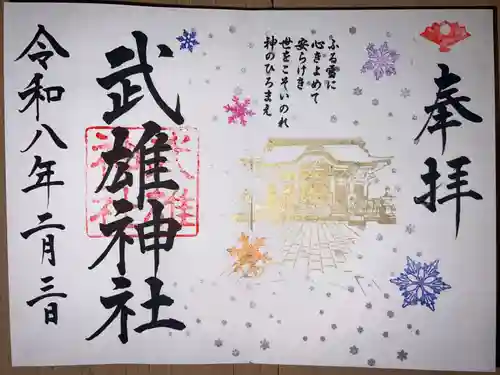 奉拝
ふる雪に
心きよめて
安らけき
世をこそいのれ
神のひろまえ
武雄神社
武雄神社
令和八年二月三日